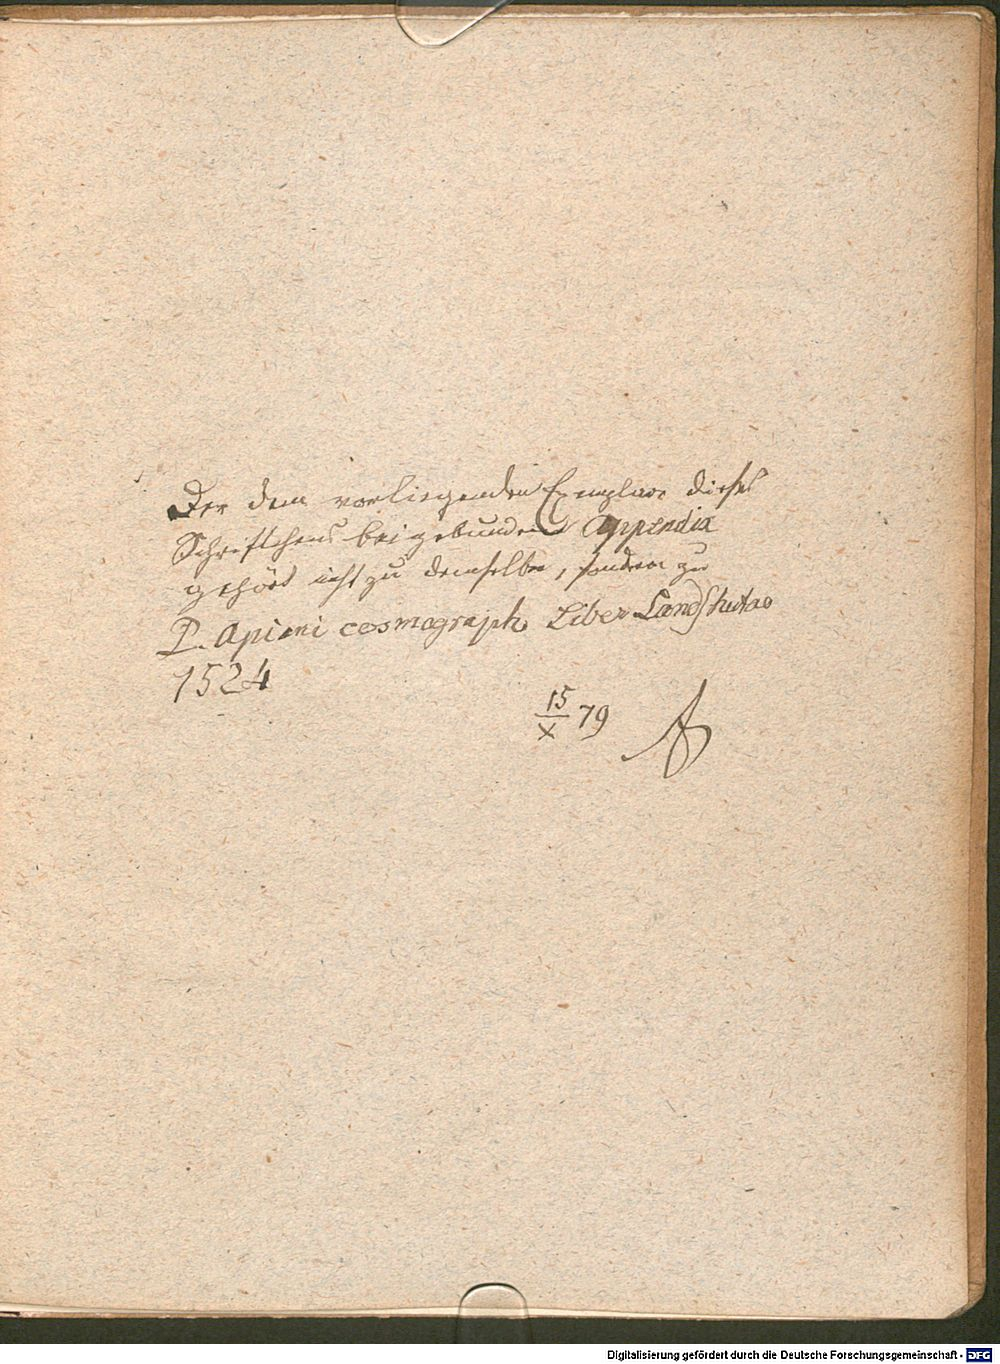 Der dem vorliegenden Exemplare dieses
Schriftchens beigebundene Appendix
gehört nicht zu demselben, sondern zu
P. Apiani cosmograph. Liber Landshutae
1524
15/X 79
Digitalisierung gefördert durch die Deutsche Forschungsgemeinschaft - DFG